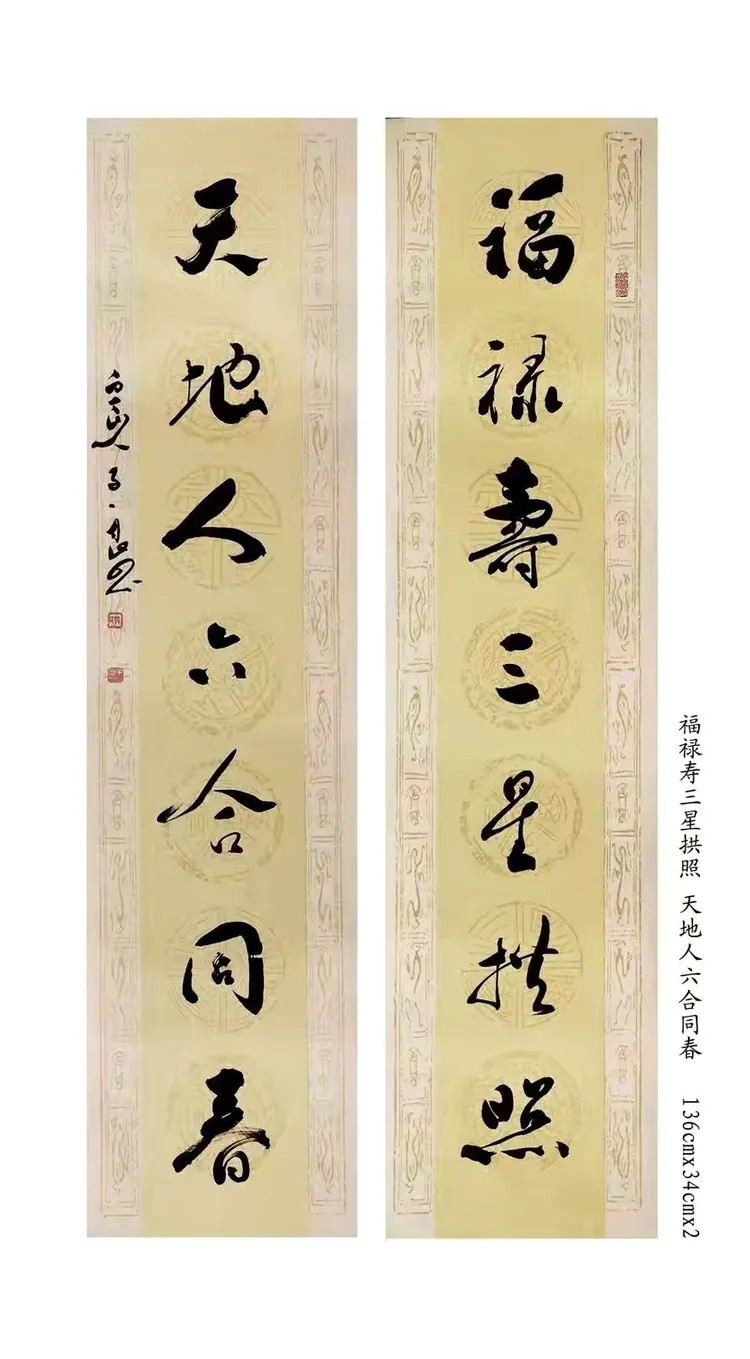 福禄壽三星拱照
天地人六合同春
福禄寿三星拱照 天地人六合同春 136cmx34cmx2